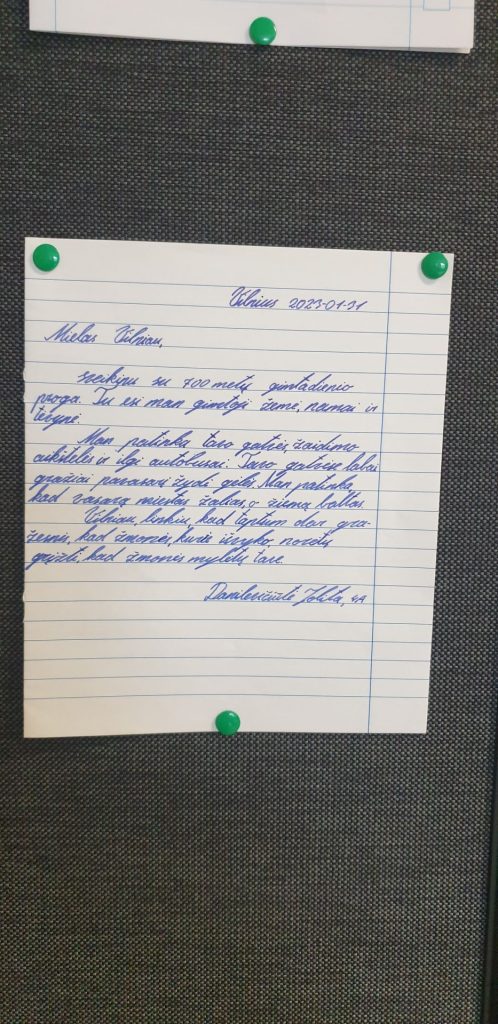 Vilnius 2023-01-31
Mielas Vilniau,
sveikinu su 700 metų gimtadienio
proga. Tu esi man gimtoji žemė, namai ir
tėvynė.
Man patinka tavo gatvės, žaidimo
aikštelės ir ilgi autobusai. Tavo gatvėse labai
gražiai pavasarį žydi gėlės. Man patinka,
kad vasarą miestas žalias, o žiemą baltas.
Vilniau, linkiu, kad taptum dar gra-
žesnis, kad žmonės, kurie išvyko, norėtų
grįžti, kad žmonės mylėtų tave.
Danilevičiūtė Jolita, 4A